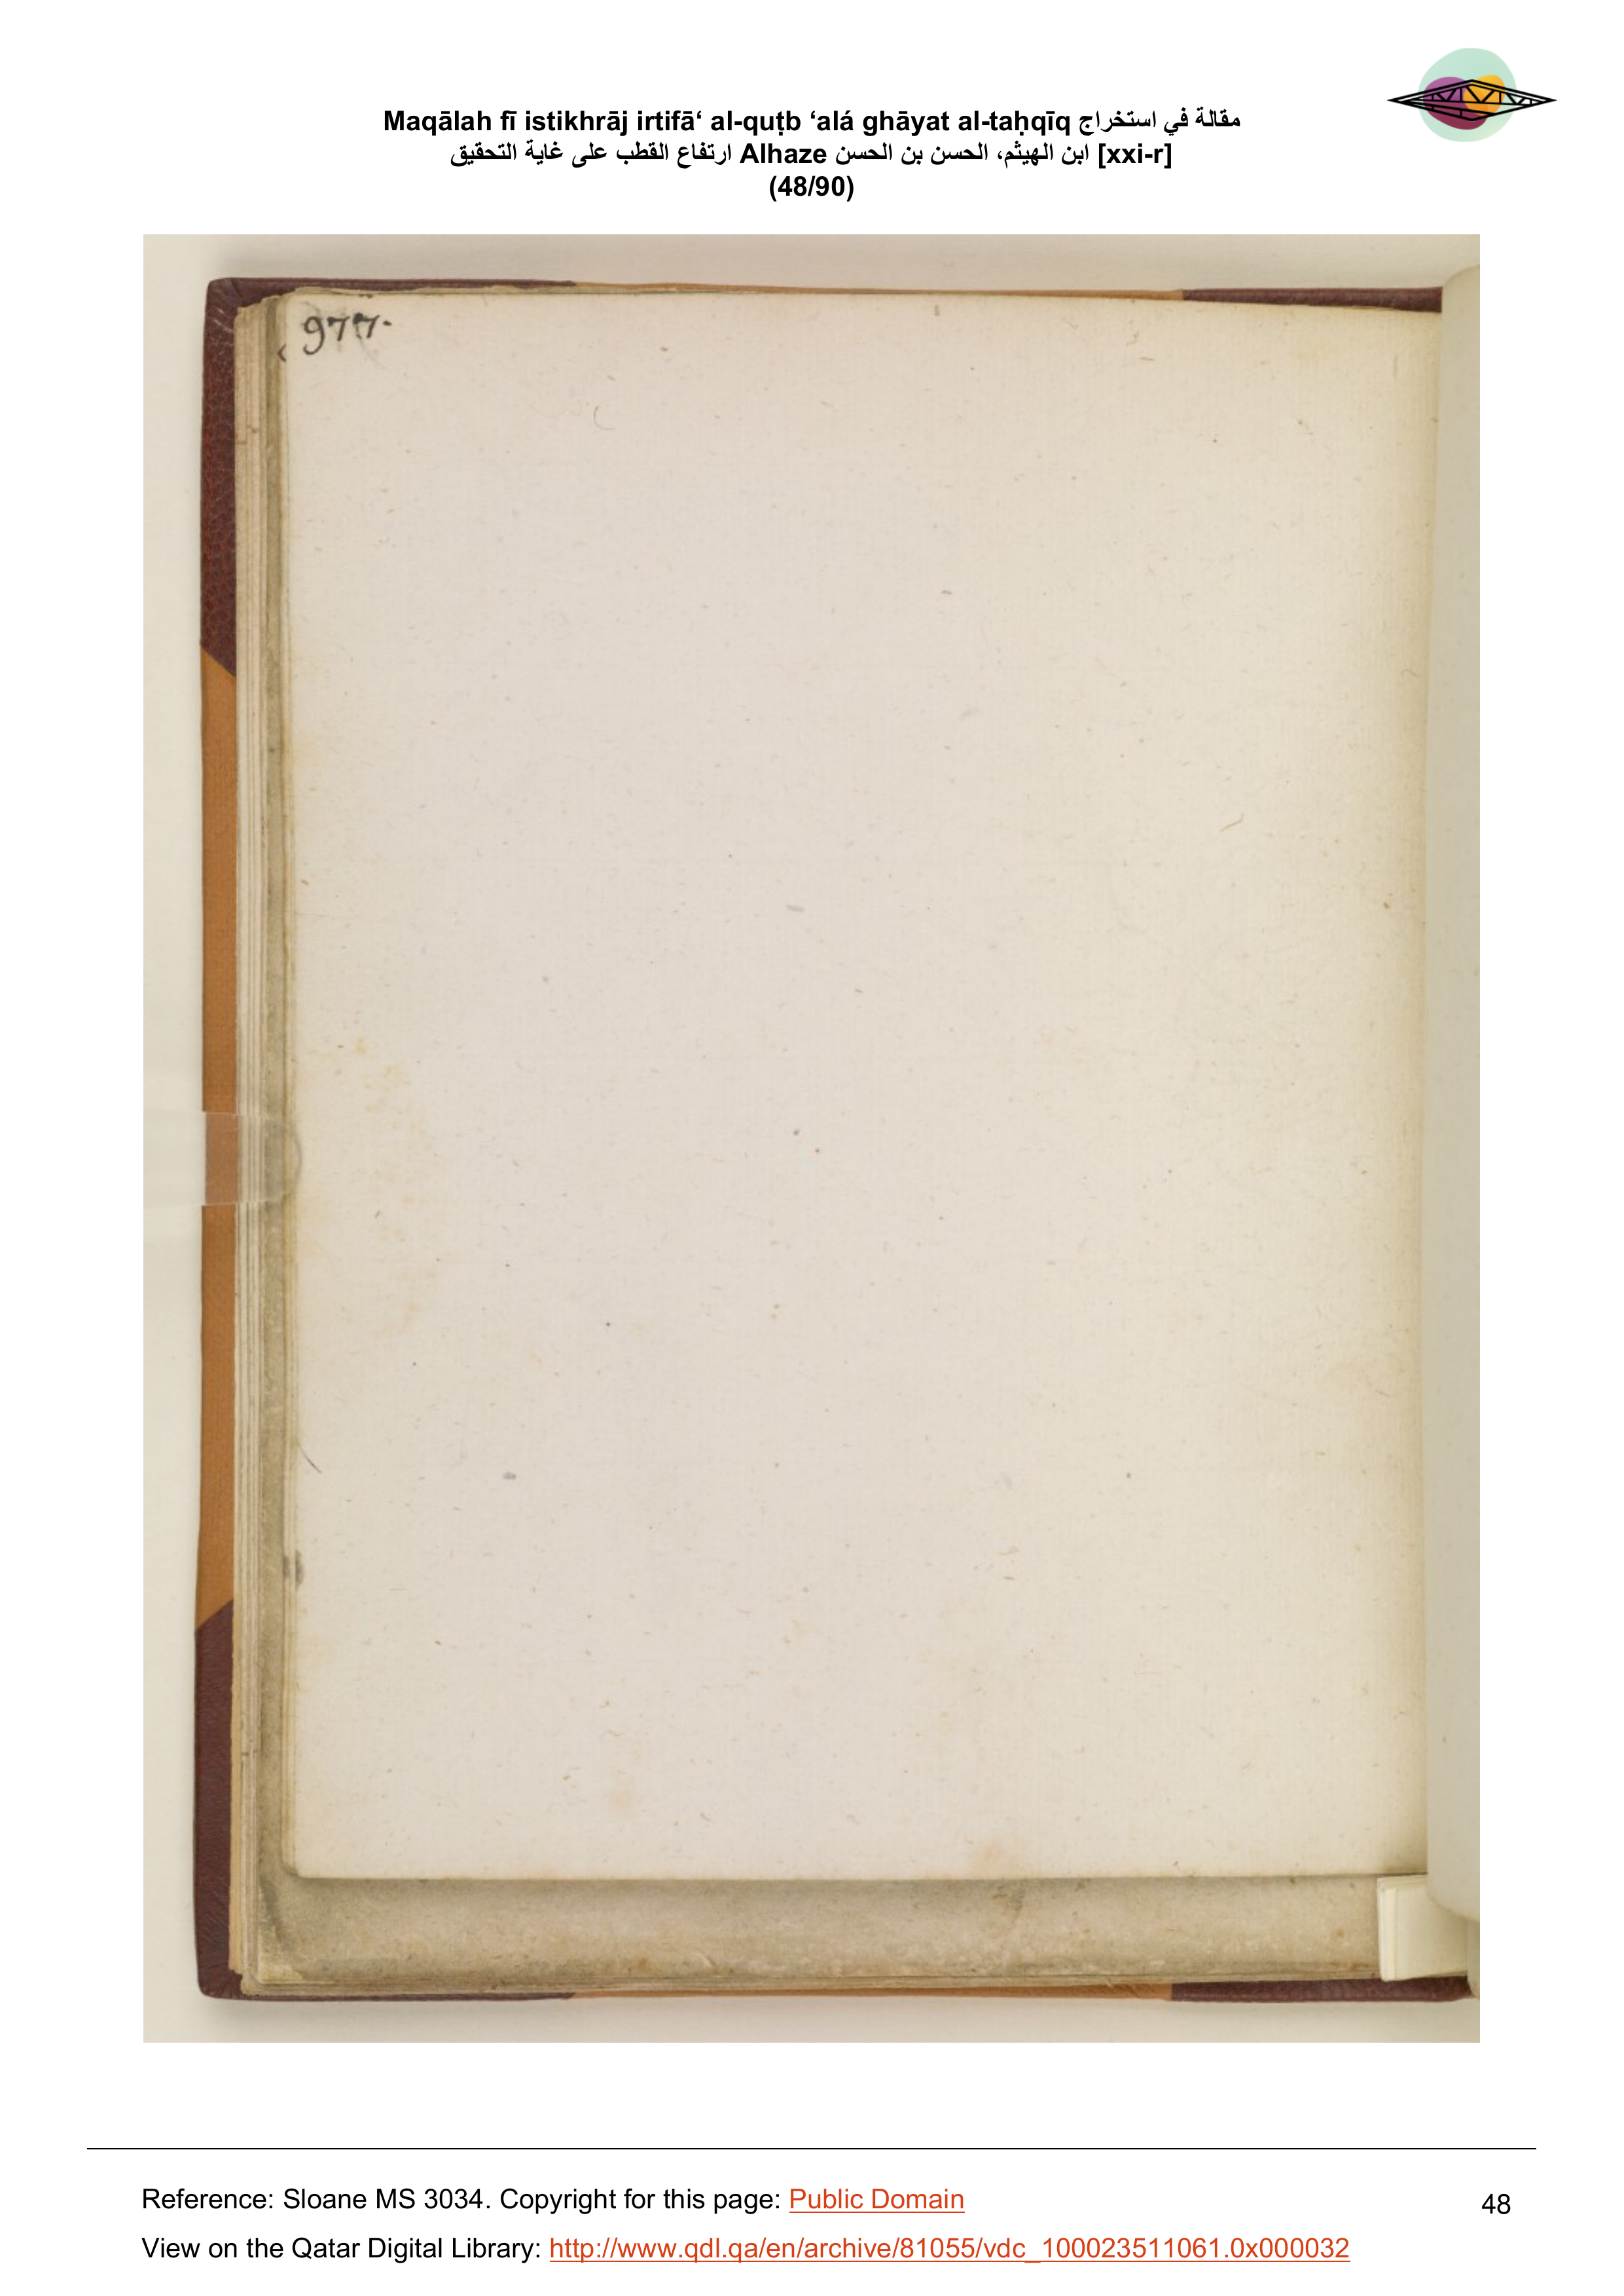 Maqālah fī istikhrāj irtifā‘ al-quṭb ‘alá ghāyat al-taḥqīq مقالة في استخراج
ارتفاع القطب على غاية التحقيق Alhaze ابن الهيثم، الحسن بن الحسن [xxi-r]
(48/90)
977.
Reference: Sloane MS 3034. Copyright for this page: Public Domain
48
View on the Qatar Digital Library: http://www.qdl.qa/en/archive/81055/vdc_100023511061.0x000032